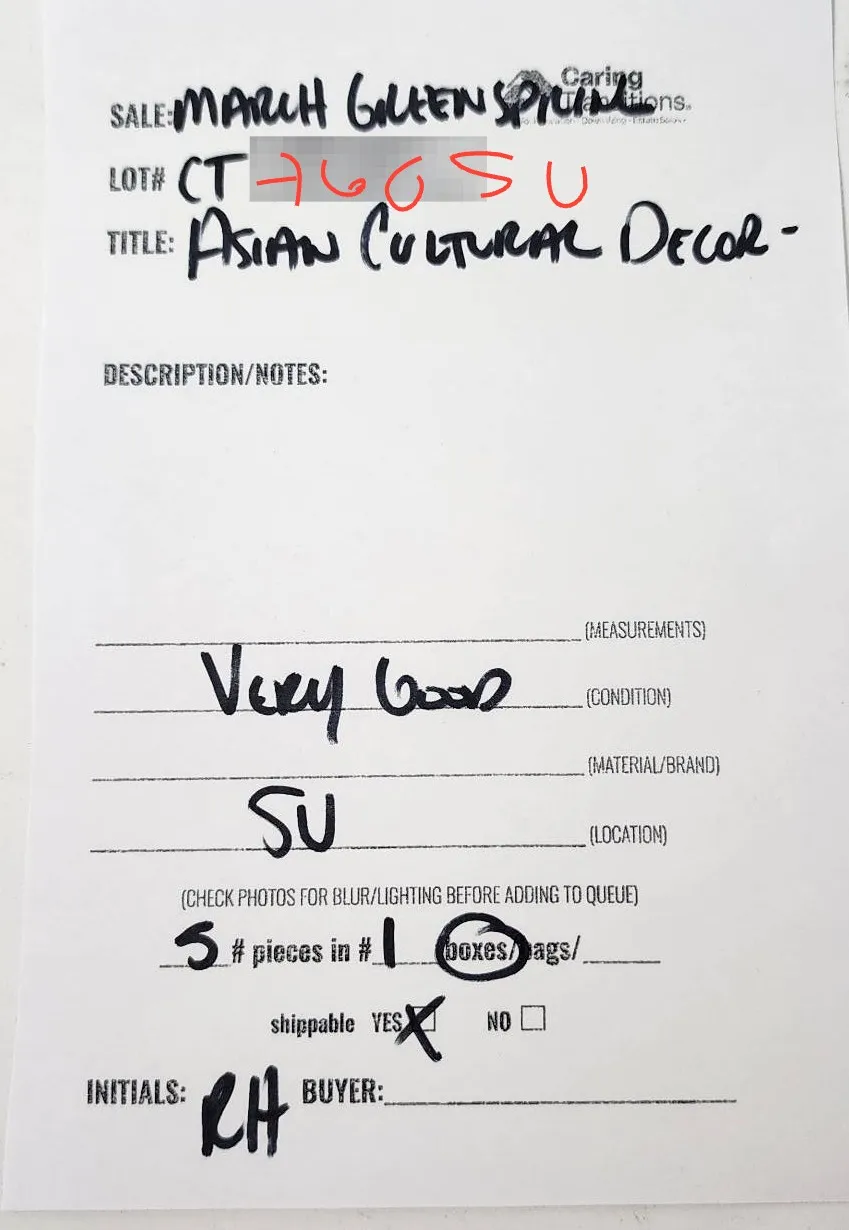 Caring
Transitions.
SALE: MARCH GREENSPRING
LOT# CT 7605U
TITLE: ASIAN CULTURAL DECOR-
DESCRIPTION/NOTES:
(MEASUREMENTS)
VERY GOOD (CONDITION)
(MATERIAL/BRAND)
SU (LOCATION)
(CHECK PHOTOS FOR BLUR/LIGHTING BEFORE ADDING TO QUEUE)
5 # pieces in # 1 boxes/bags/
shippable YES X NO
INITIALS: RH BUYER: